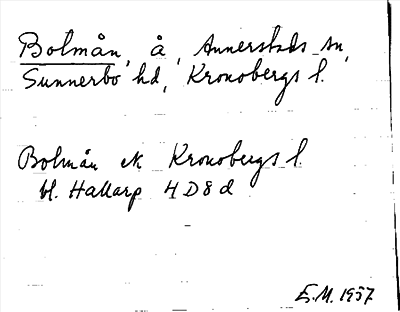 Bolmån, å, Annerstads sn,
Sunnerbo hd, Kronobergs l.
Bolmån ek Kronobergs l.
bl. Hallarp 4D8d
E.M. 1957